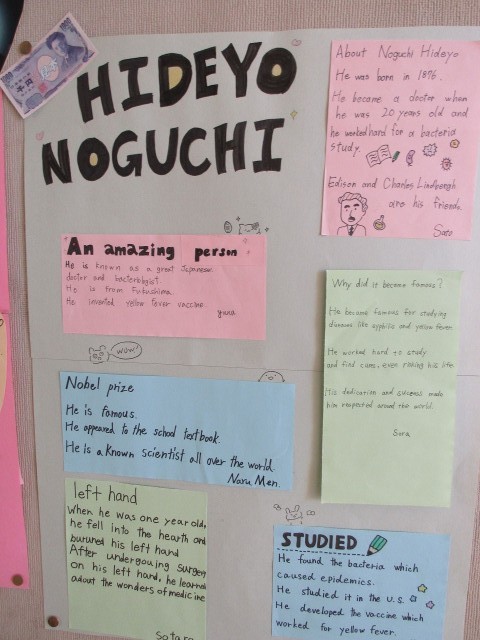 HIDEYO
NOGUCHI
About Noguchi Hideyo
He was born in 1876.
He became a doctor when
he was 20 years old and
he worked hard for a bacteria
study.
Edison and Charles Lindbergh
are his friends.
Sato
An amazing person
He is known as a great Japanese
doctor and bacteriologist.
He is from Fukushima.
He invented yellow fever vaccine.
yuua
Why did it become famous?
He became famous for studying
diseases like syphilis and yellow fever.
He worked hard to study
and find cures, even risking his life.
His dedication and success made
him respected around the world.
Sora
wow!
Nobel prize
He is famous.
He appeared to the school textbook.
He is a known scientist all over the world.
Naru Men.
left hand
When he was one year old,
he fell into the hearth and
burured his left hand
After undergouing surgery
on his left hand, he learned
adout the wonders of medicine
Sotaro
STUDIED
He found the bacteria which
caused epidemics.
He studied it in the U.S.
He developed the vaccine which
worked for yellow fever.